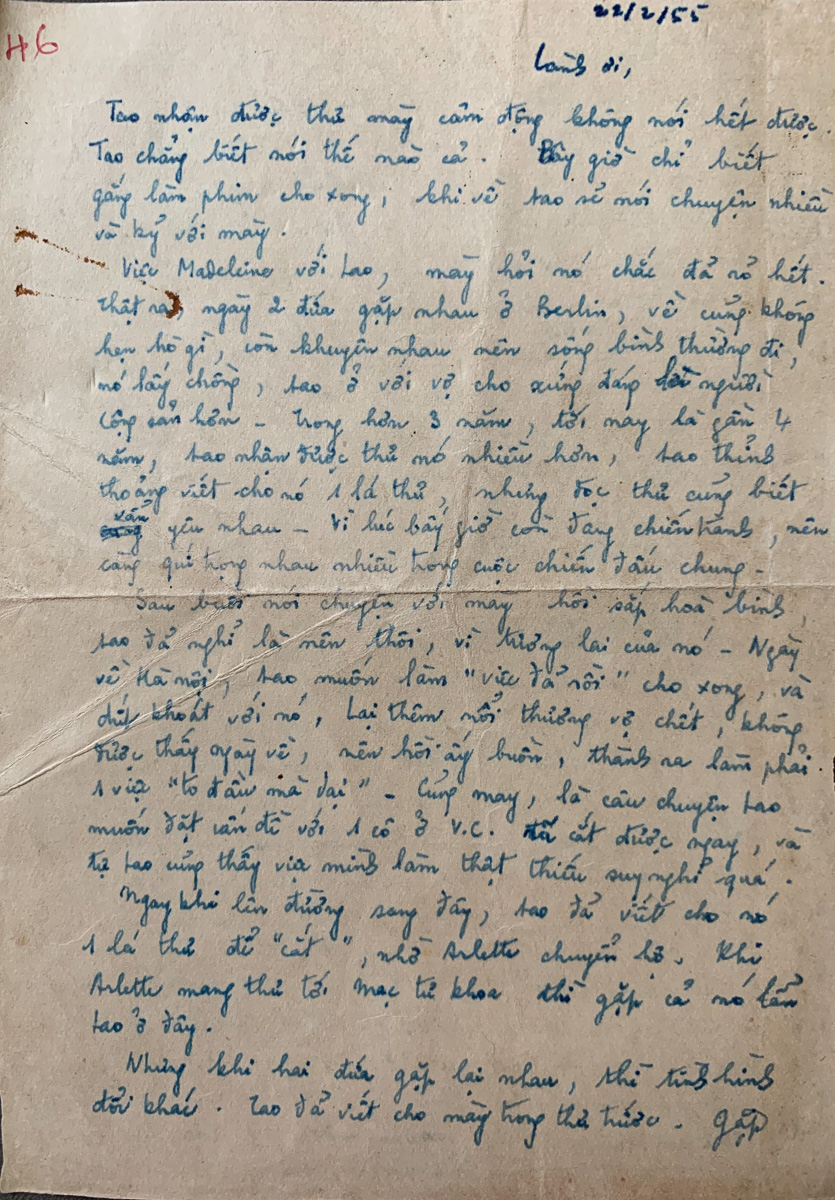 22/2/55
H6
Lành ơi,
Tao nhận được thư mày cảm động không nói hết được.
Tao chẳng biết nói thế nào cả. Bây giờ chỉ biết
gắng làm phim cho xong, khi về tao sẽ nói chuyện nhiều
và kỹ với mày.
Việc Madeleine với tao, mày hỏi nó chắc đã rõ hết.
Thật ra, ngày 2 đứa gặp nhau ở Berlin, về cũng không
hẹn hò gì, còn khuyên nhau nên sống bình thường đi,
nó lấy chồng, tao ở với vợ cho xứng đáng người
cộng sản hơn – Trong hơn 3 năm, tới nay là gần 4
năm, tao nhận được thư nó nhiều hơn, tao thỉnh
thoảng viết cho nó 1 lá thư, nhưng đọc thư cũng biết
vẫn yêu nhau – Vì lúc bấy giờ còn đang chiến tranh, nên
càng quí trọng nhau nhiều trong cuộc chiến đấu chung –
Sau buổi nói chuyện với mày hồi sắp hoà bình,
tao đã nghĩ là nên thôi, vì tương lai của nó – Ngày
về Hà nội, tao muốn làm "việc đã rồi" cho xong, và
dứt khoát với nó, lại thêm nỗi thương vợ chết, không
được thấy ngày về, nên hồi ấy buồn, thành ra làm phải
1 việc "to đầu mà dại" – Cũng may, là câu chuyện tao
muốn đặt vấn đề với 1 cô ở V.C. đã cắt được ngay, và
tự tao cũng thấy việc mình làm thật thiếu suy nghĩ quá.
Ngay khi lên đường sang đây, tao đã viết cho nó
1 lá thư để "cắt", nhờ Arlette chuyển hộ. Khi
Arlette mang thư tới Mạc tư khoa thì gặp cả nó lẫn
tao ở đây.
Nhưng khi hai đứa gặp lại nhau, thì tình hình
đổi khác. Tao đã viết cho mày trong thư trước. Gặp